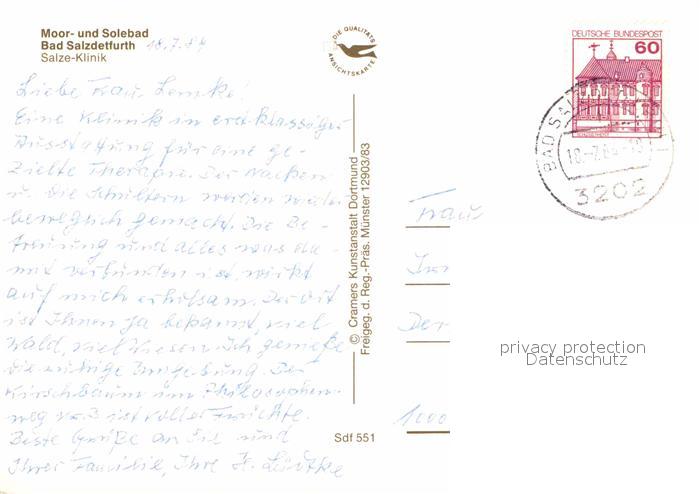 Moor- und Solebad
Bad Salzdetfurth 18.7.84
Salze-Klinik
DIE QUALITÄTS
ANSICHTSKARTE
DEUTSCHE BUNDESPOST
60
BAD SAL
18.-7.84-18
3202
Liebe Frau Lemke!
Eine Klinik in erstklassiger
Ausstattung für eine ge-
zielte Therapie. Der Nacken
u. die Schultern werden wieder
beweglich gemacht. Die Be-
treuung und alles was da-
mit verbunden ist, wirkt
auf mich erholsam. Der Ort
ist Ihnen ja bekannt, viel
Wald, viel Wiesen. Ich genieße
die ruhige Umgebung. Der
Kirschbaum im Philosophen-
weg 3 ist voller Früchte.
Beste Grüße an Sie und
Ihrer Familie, Ihre H. Lüdtke
© Cramers Kunstanstalt Dortmund
Freigeg. d. Reg.-Präs. Münster 12903/83
Frau
Der
1000
Sdf 551
privacy protection
Datenschutz